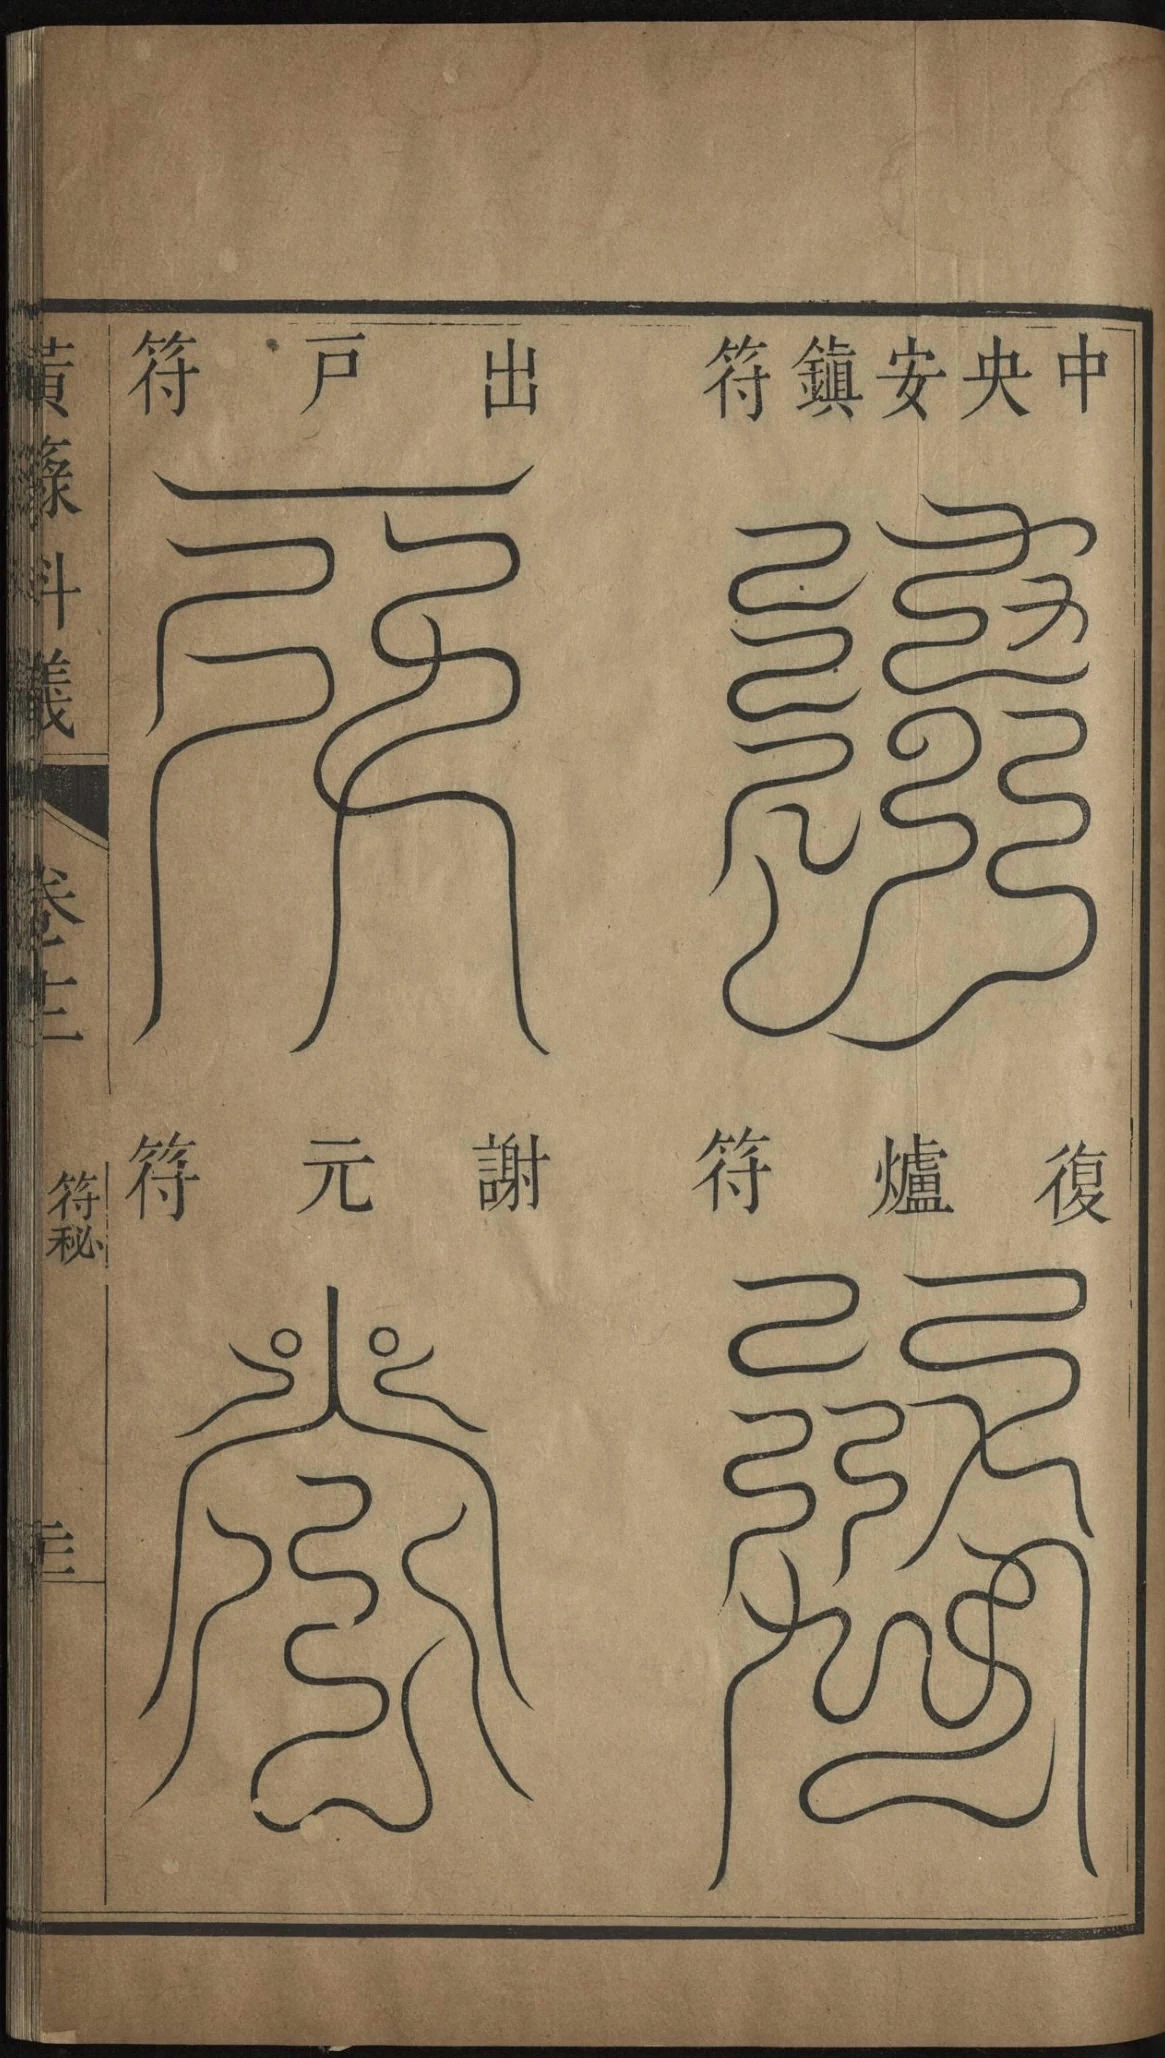 中央安鎮符
復爐符
出戶符
謝元符
黃籙科儀
卷十二
符秘